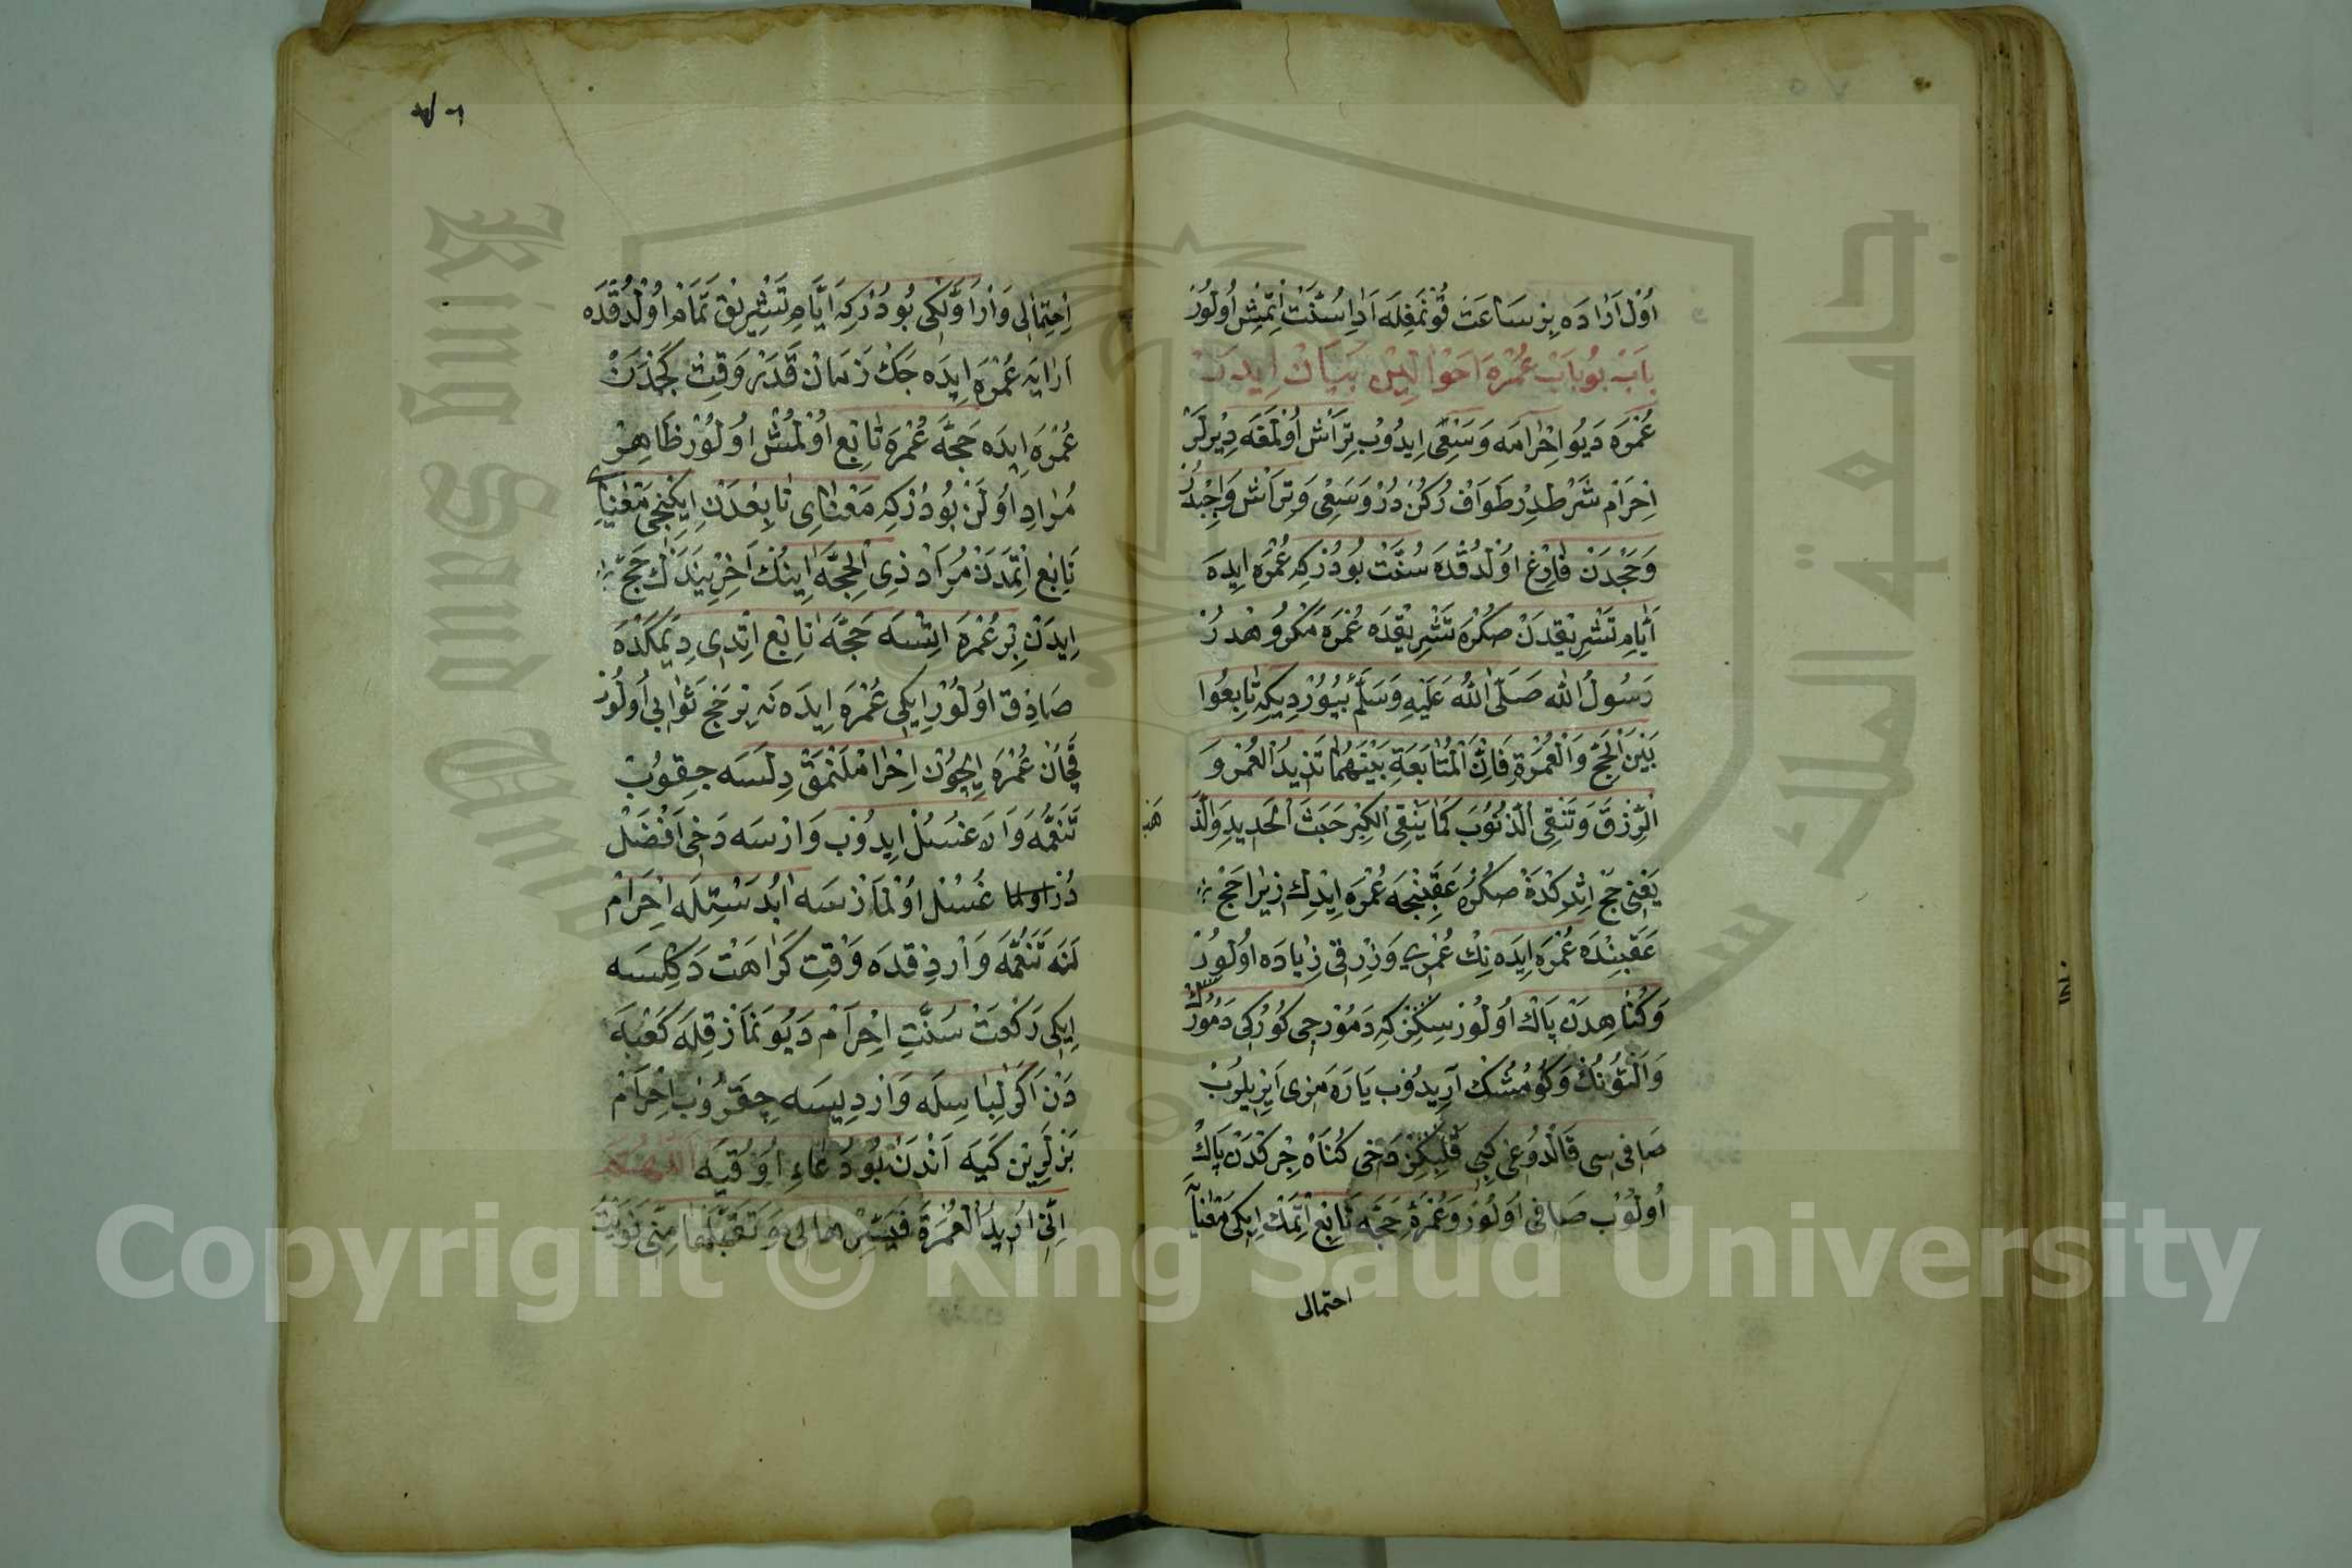 اُولْ اَرَادَه بِرْ سَاعَتْ قُونْمَغِلَه اَدَاِ سُنَّتْ اِتْمِشْ اُولُورْ
بَابْ بُو بَابْ عُمْرَه اَحْوَالِيْنِ بَيَانْ اِيدَرْ
عُمْرَه دَيُو اِحْرَامَه وَسَعْىِ اِيدُوبْ تِرَاشْ اُولْمَغَه دِيرْلَرْ
اِحْرَامْ شَرْطْدِرْ طَوَافْ رُكُنْ دُرْ وَسَعْىِ وَتِرَاشْ وَاجِبْدُرْ
وَحَجْدَنْ فَارِغْ اُولْدُقْدَه سُنَّتْ بُودُرْكِه عُمْرَه اِيدَه
اَيَّامِ تَشْرِيقْدَنْ صُكْرَه تَشْرِيقْدَه عُمْرَه مَكْرُوهْدُرْ
رَسُولُ الله صَلَّى اللهُ عَلَيْهِ وَسَلَّمْ بُيُورْدِيكِه تَابِعُوا
بَيْنَ الْحَجِّ وَالْعُمْرَةِ فَاِنَّ الْمُتَابَعَةِ بَيْنَهُمَا تَزِيدُ الْعُمْرَ وَ
الرِّزْقَ وَتَنْقِى الذُّنُوبَ كَمَا يَنْقِى الْكِيْرَ خَبَثَ الْحَدِيدِ وَالذَّ
هَبِ
يَعْنِى حَجْ اِتْدِكْدَنْ صُكْرَه عَقِبِنْجَه عُمْرَه اِيْدِكْ زِيرَا حَجْ
عَقِبِنْدَه عُمْرَه اِيدَه نِكْ عُمْرِى وَرِزْقِى زِيَادَه اُولُورْ
وَكُنَاهِدَنْ پَاكْ اُولُورْسِكِزْ كِه دَمُورْجِى كُورُكِى دَمُورُكْ
وَالْتُونُكْ وَكُومُشُكْ اَرِيدُوبْ يَارَه مَزِى اَيْرِيلُوبْ
صَافِى سِى قَالْدُوغِى كِبِى قَلْبِكِزْ دَخِى كُنَاهْ جِرْكَنْدَنْ پَاكْ
اُولُوبْ صَافِى اُولُورْ وَعُمْرَۀِ حَجَّه تَابِعْ اِتْمَكْ اِيكِى مَعْنَايَه
احتمالى
اِحْتِمَالِى وَارْ اَوَّلْكِى بُودُرْكِه اَيَّامِ تَشْرِيقْ تَمَامْ اُولْدُقْدَه
اَرَايَه عُمْرَه اِيدَه جَكْ زَمَانْ قَدَرْ وَقِتْ كَچْدَنْ
عُمْرَه اِيدَه حَجَّه عُمْرَه تَابِعْ اُولْمُشْ اُولُورْ ظَاهِرْ
مُرَادِ اُولَنْ بُودُرْكِه مَعْنَاىِ تَابِعْدَنْ اِيكِنْجِى مَعْنَاىِ
تَابِعْ اِتْمَدَنْ مُرَادْ ذِى الْحِجَّه اَيِنُكْ اَخِرِيْنَدَكْ حَجّ
اِيدَنْ بِرْ عُمْرَه اِتْسَه حَجَّه تَابِعْ اِتْدِى دِيمَكْدَه
صَادِقْ اُولُورْ اِيكِى عُمْرَه اِيدَه نَه بِرْ حَجْ ثَوَابِى اُولُورْ
قَچَانْ عُمْرَه اِيچُونْ اِحْرَامْلَنْمَقْ دِلَسَه چِقُوبْ
تَنَعُّمَه وَارَه غُسُلْ اِيدُوبْ وَارْسَه دَخِى اَفْضَلْ
دُرْ غُسْلْ اُولْمَازْسَه اَبْدَسْتِلَه اِحْرَامْ
لَنَه تَنَعُّمَه وَارْدِقْدَه وَقْتِ كَرَاهَتْ دَكِلْسَه
اِيكِى رَكْعَتْ سُنَّتِ اِحْرَامْ دَيُو نَمَازْ قِلَه كَعْبَه
دَنْ اَكَرْ لِبَاسِلَه وَارْدِيسَه چِقَرُوبْ اِحْرَامْ
بَزْلَرِيْنِ كَيَه اَنْدَنْ بُو دُعَاءِ اُوقُيَه اَللّٰهُمَّ
اِنِّى اُرِيدُ الْعُمْرَةَ فَيَسِّرْ هَالِى وَتَقَبَّلْهَا مِنِّى نَوَيْتُ
Copyright © King Saud University
King Saud University
جامعة الملك سعود